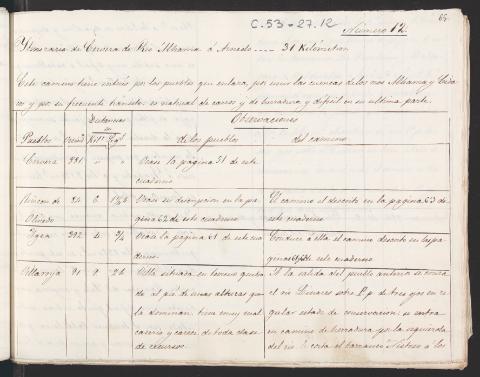 65.
C.53-27.12
Número 12.
Itinerario de Cervera de Rio Alhama á Arnedo ---- 31 Kilómetros
Este camino tiene interés por los pueblos que enlaza, por unir las cuencas de los rios Alhama y Cidacos
y por su frecuente transito: es natural de carros y de herradura y dificil en su ultima parte.
Pueblos
Distancias
en
Kils
Observaciones
de los pueblos
del camino
Cervera 991 " "
Véase la página 51 de este
cuaderno
Rincon de
Olivedo
34 6
Véase su descripcion en la pagina
62 de este cuaderno
El camino el descrito en la pagina 63 de
este cuaderno
Igea 392 4 3/4
Véase la página 61 de este cuaderno.
Conduce á ella el camino descrito en las paginas
de este cuaderno
Villarroya 91 9
Villa situada en terreno quebrado
al pié de unas alturas que
la dominan: tiene muy mal
caserio y carece de toda clase
de recursos.
A la salida del pueblo anterior se cruza
el rio Linares sobre P. p. de tres ojos en regular
estado de conservacion: se entra
en camino de herradura por la izquierda
del rio: le corta el barranco á los